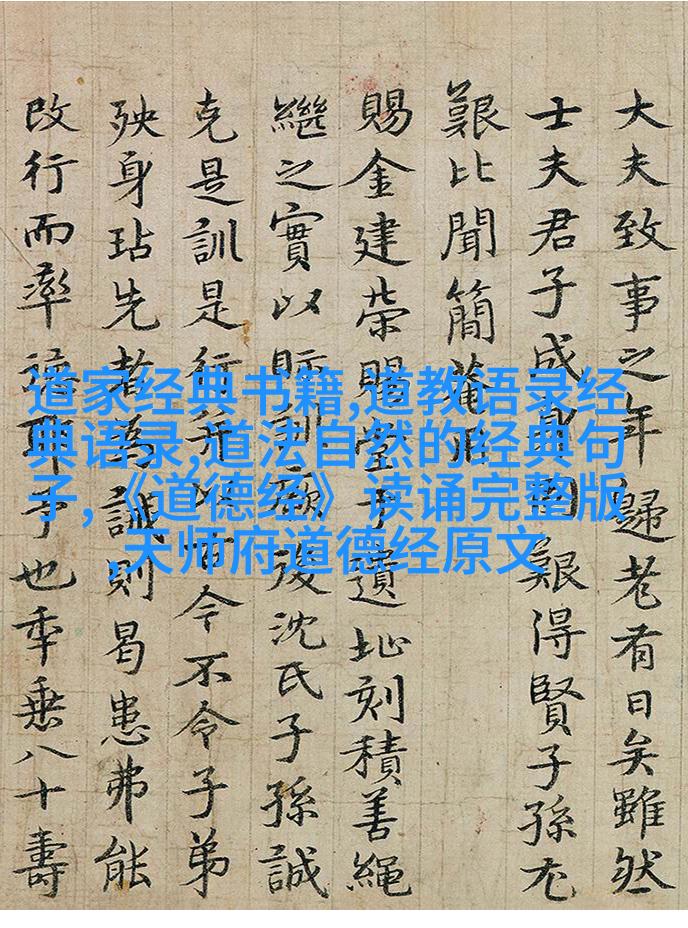 大夫致事之年歸老有日矣雖然
士夫君子成艱得賢子孫尤
艱比聞簡菴
賜金建榮賜堂于遺址刻積善繩
繼之實以貽訓厥後沈氏子孫誠
克是訓是行令不令子弟
殃身玷先者為誡則曷患弗能
改行而率諸耶予也年垂八十壽
道家经典书籍,道教语录经
典语录,道法自然的经典句
子,《道德经》读诵完整版
,天师府道德经原文